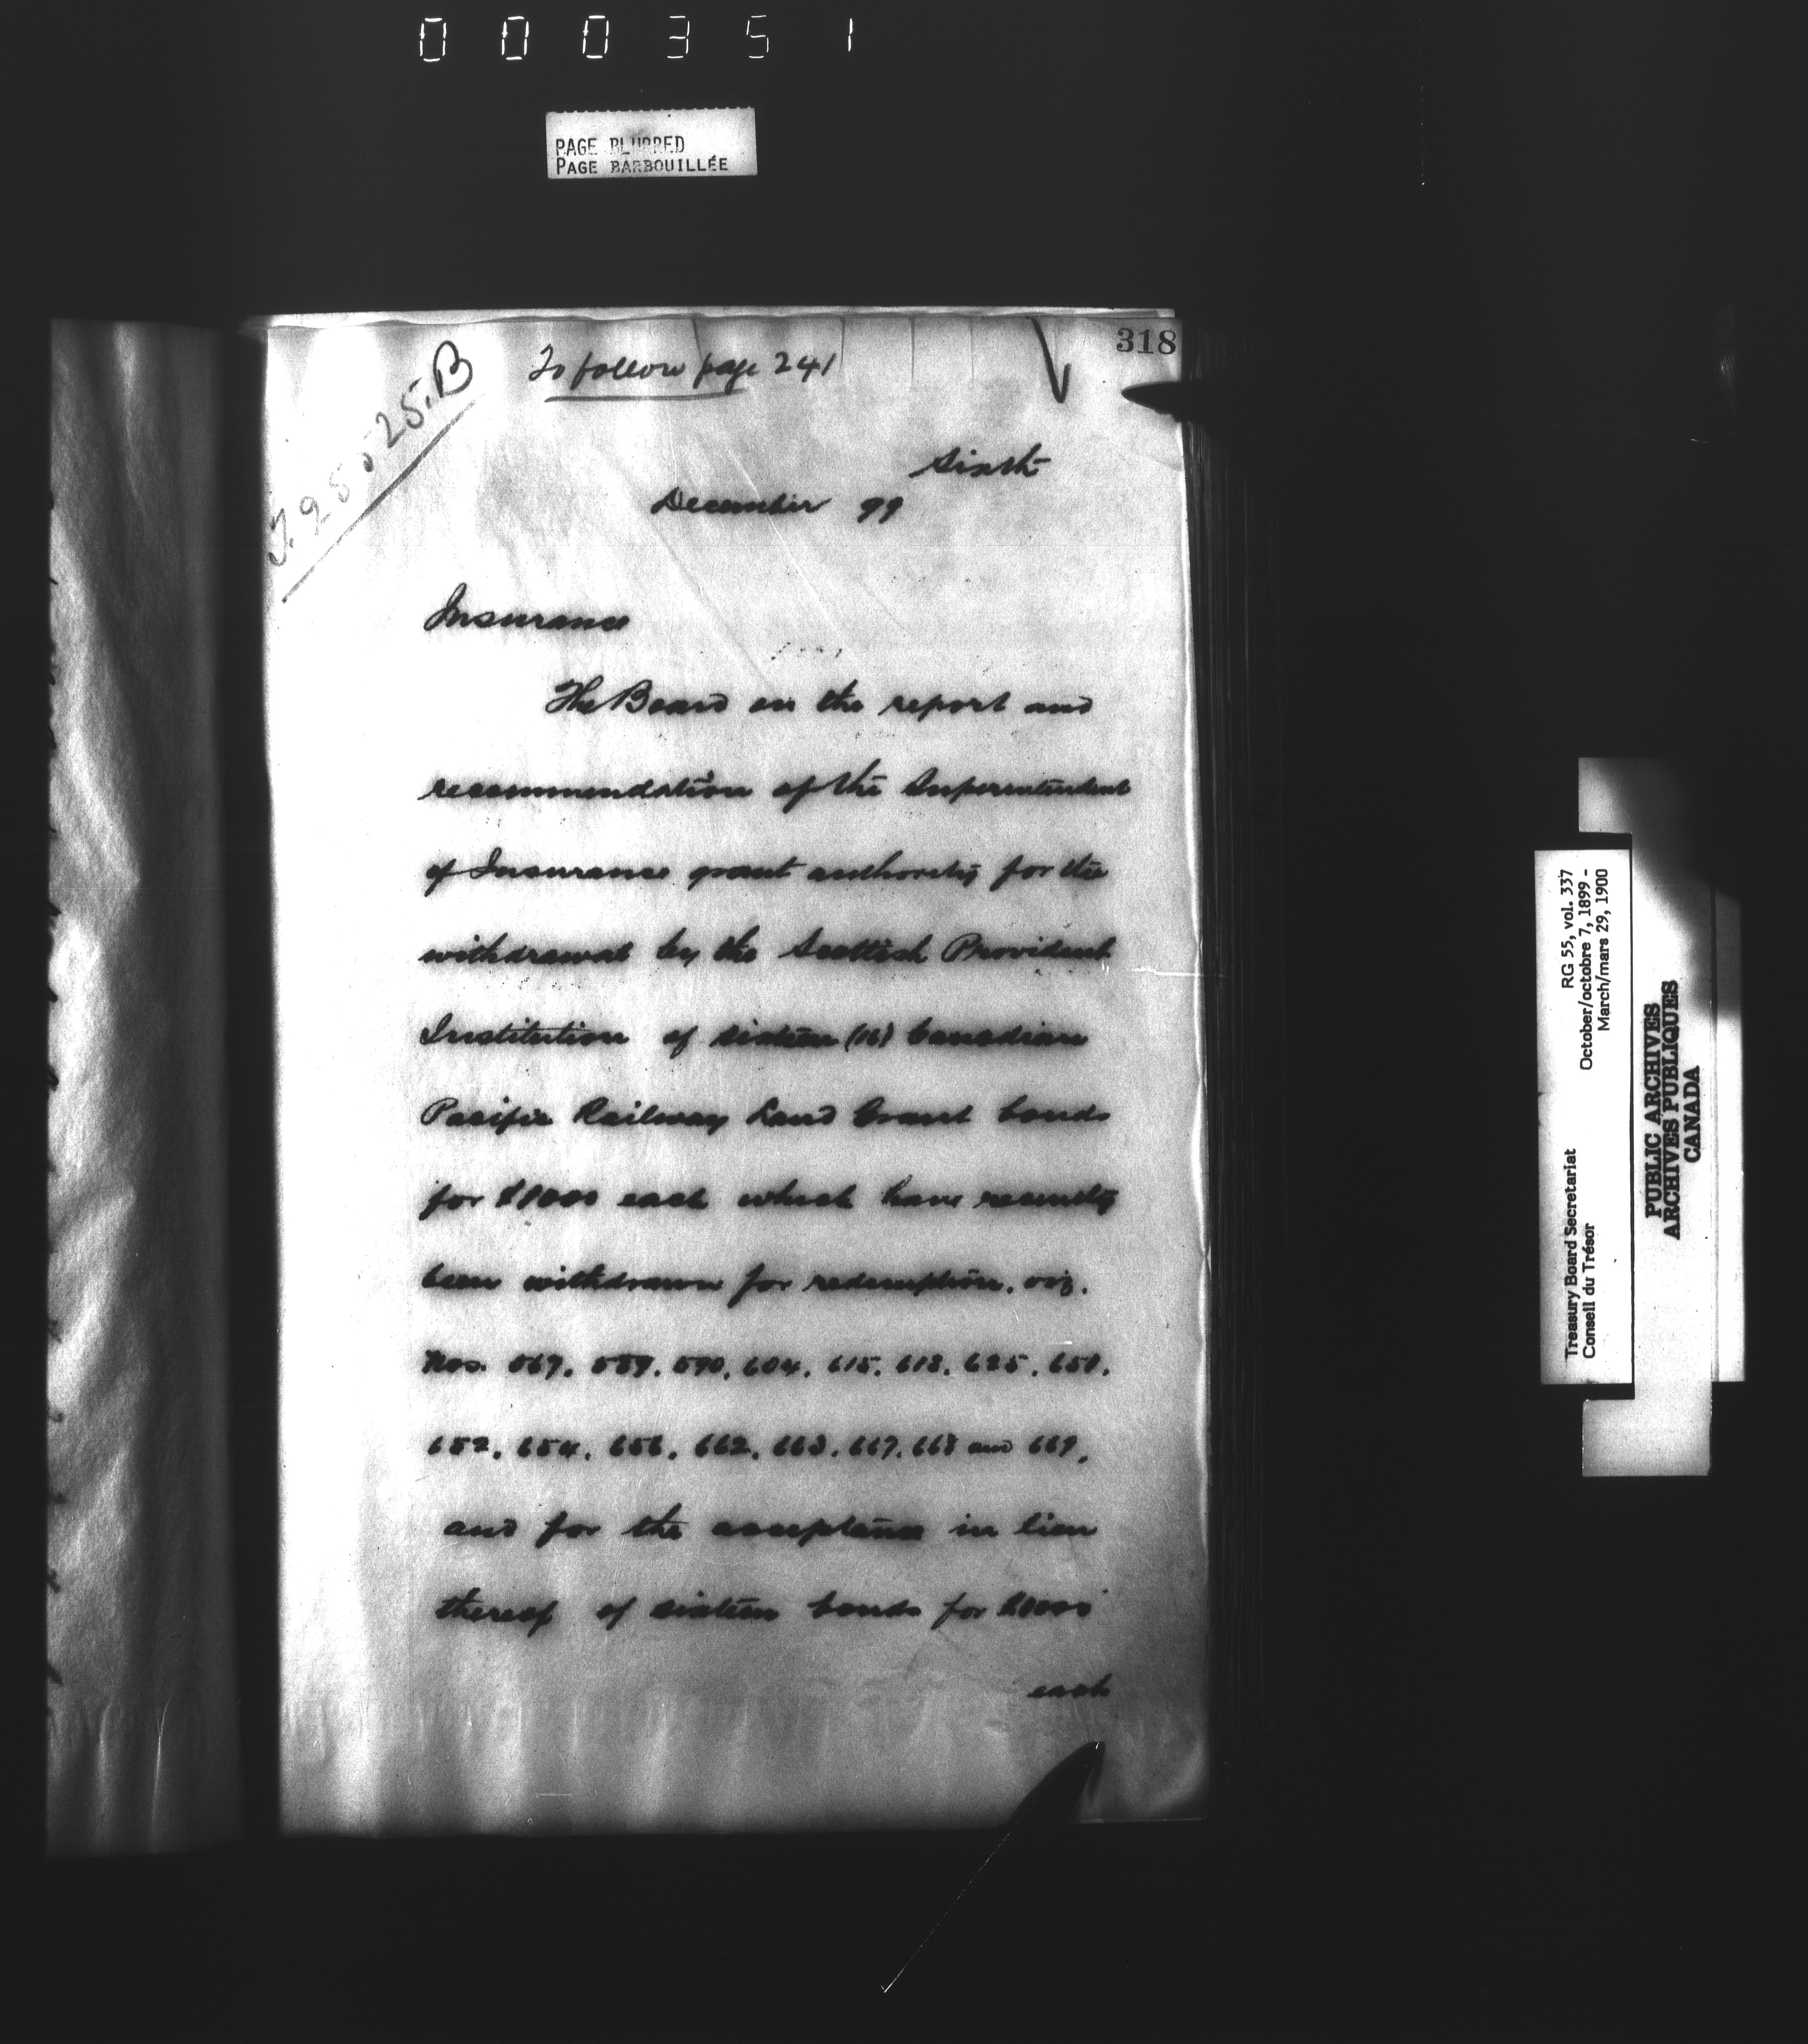 0 0 0 3 5 1
PAGE BLURRED
PAGE BARBOUILLÉE
318
To follow page 241
25.B
Sixth
December 99
Insurance
The Board on the report and
recommendation of the Superintendent
of Insurance grant authority for the
withdrawal by the Scottish Provident
Institution of sixteen (16) Canadian
Pacific Railway Land Grant bonds
for $1000 each which have recently
been withdrawn for redemption. viz.
Nos. 567. 589. 590. 604. 615. 618. 625. 651.
652. 654. 656. 662. 663. 667. 668 and 669.
and for the acceptance in lieu
thereof of sixteen bonds for $1000
each
Treasury Board Secretariat RG 55, vol. 337
Conseil du Trésor October/octobre 7, 1899 -
March/mars 29, 1900
PUBLIC ARCHIVES
ARCHIVES PUBLIQUES
CANADA